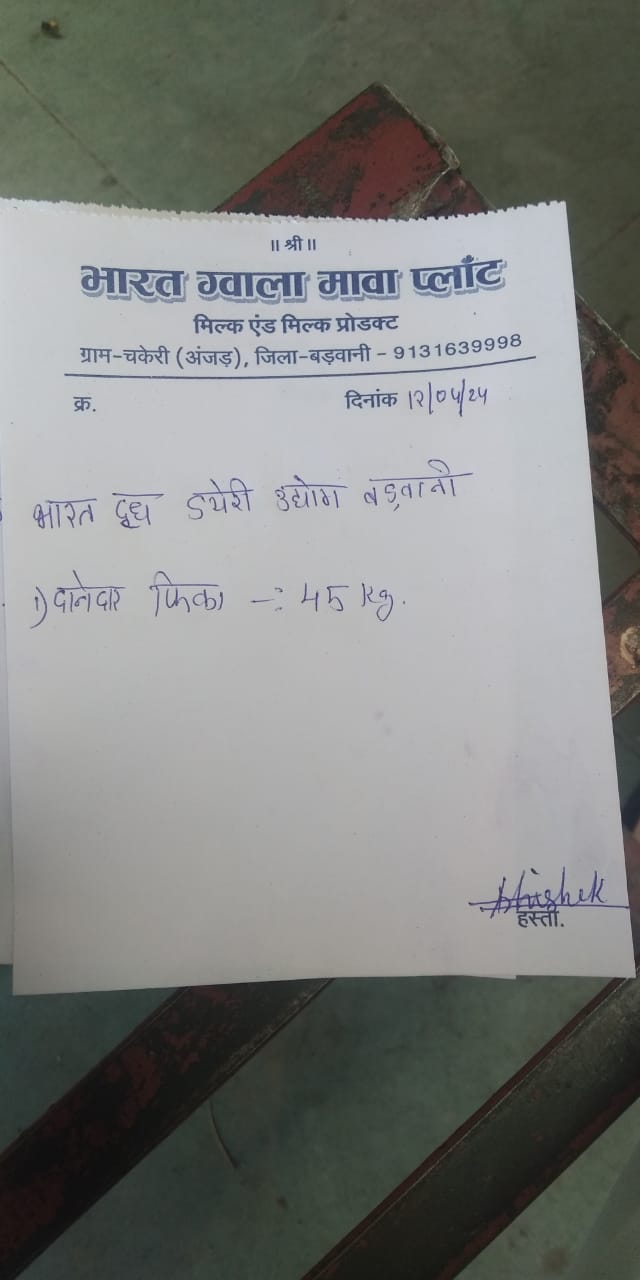 ॥ श्री ॥
भारत ग्वाला मावा प्लाँट
मिल्क एंड मिल्क प्रोडक्ट
ग्राम-चकेरी (अंजड़), जिला-बड़वानी - 9131639998
क्र. दिनांक 12/04/24
भारत दूध डयेरी उद्योग बड़वानी
1) दानेदार फिका -: 45 kg.
Abhishek
हस्ता.